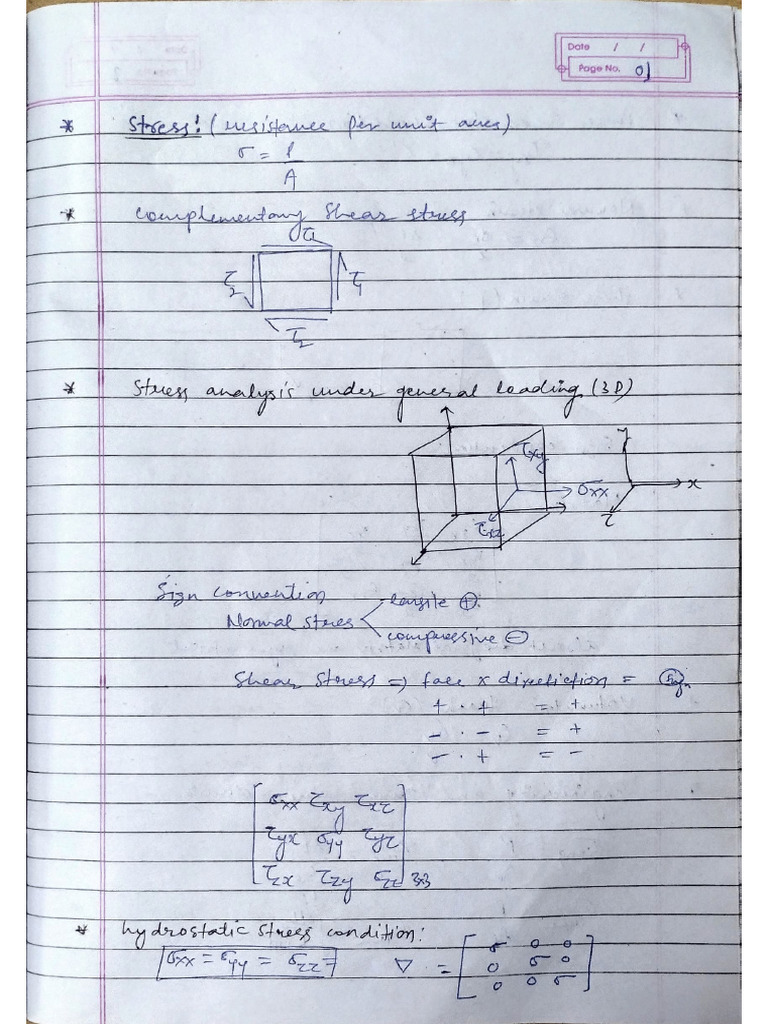 Date / /
Page No. 01
* Stress: (resistance per unit area)
σ = P
A
* Complementary Shear stress
τ1
τ2 τ1
τ2
* Stress analysis under general loading (3D)
y
τxy
σxx x
τxz z
Sign convention
Normal stress tensile ⊕
compressive ⊖
Shear stress ⇒ face x direction = Sign
+ · + = +
- · - = +
- · + = -
σxx τxy τxz
τyx σyy τyz
τzx τzy σzz 3x3
* hydrostatic stress condition:
σxx = σyy = σzz = ▽ = σ 0 0
0 σ 0
0 0 σ